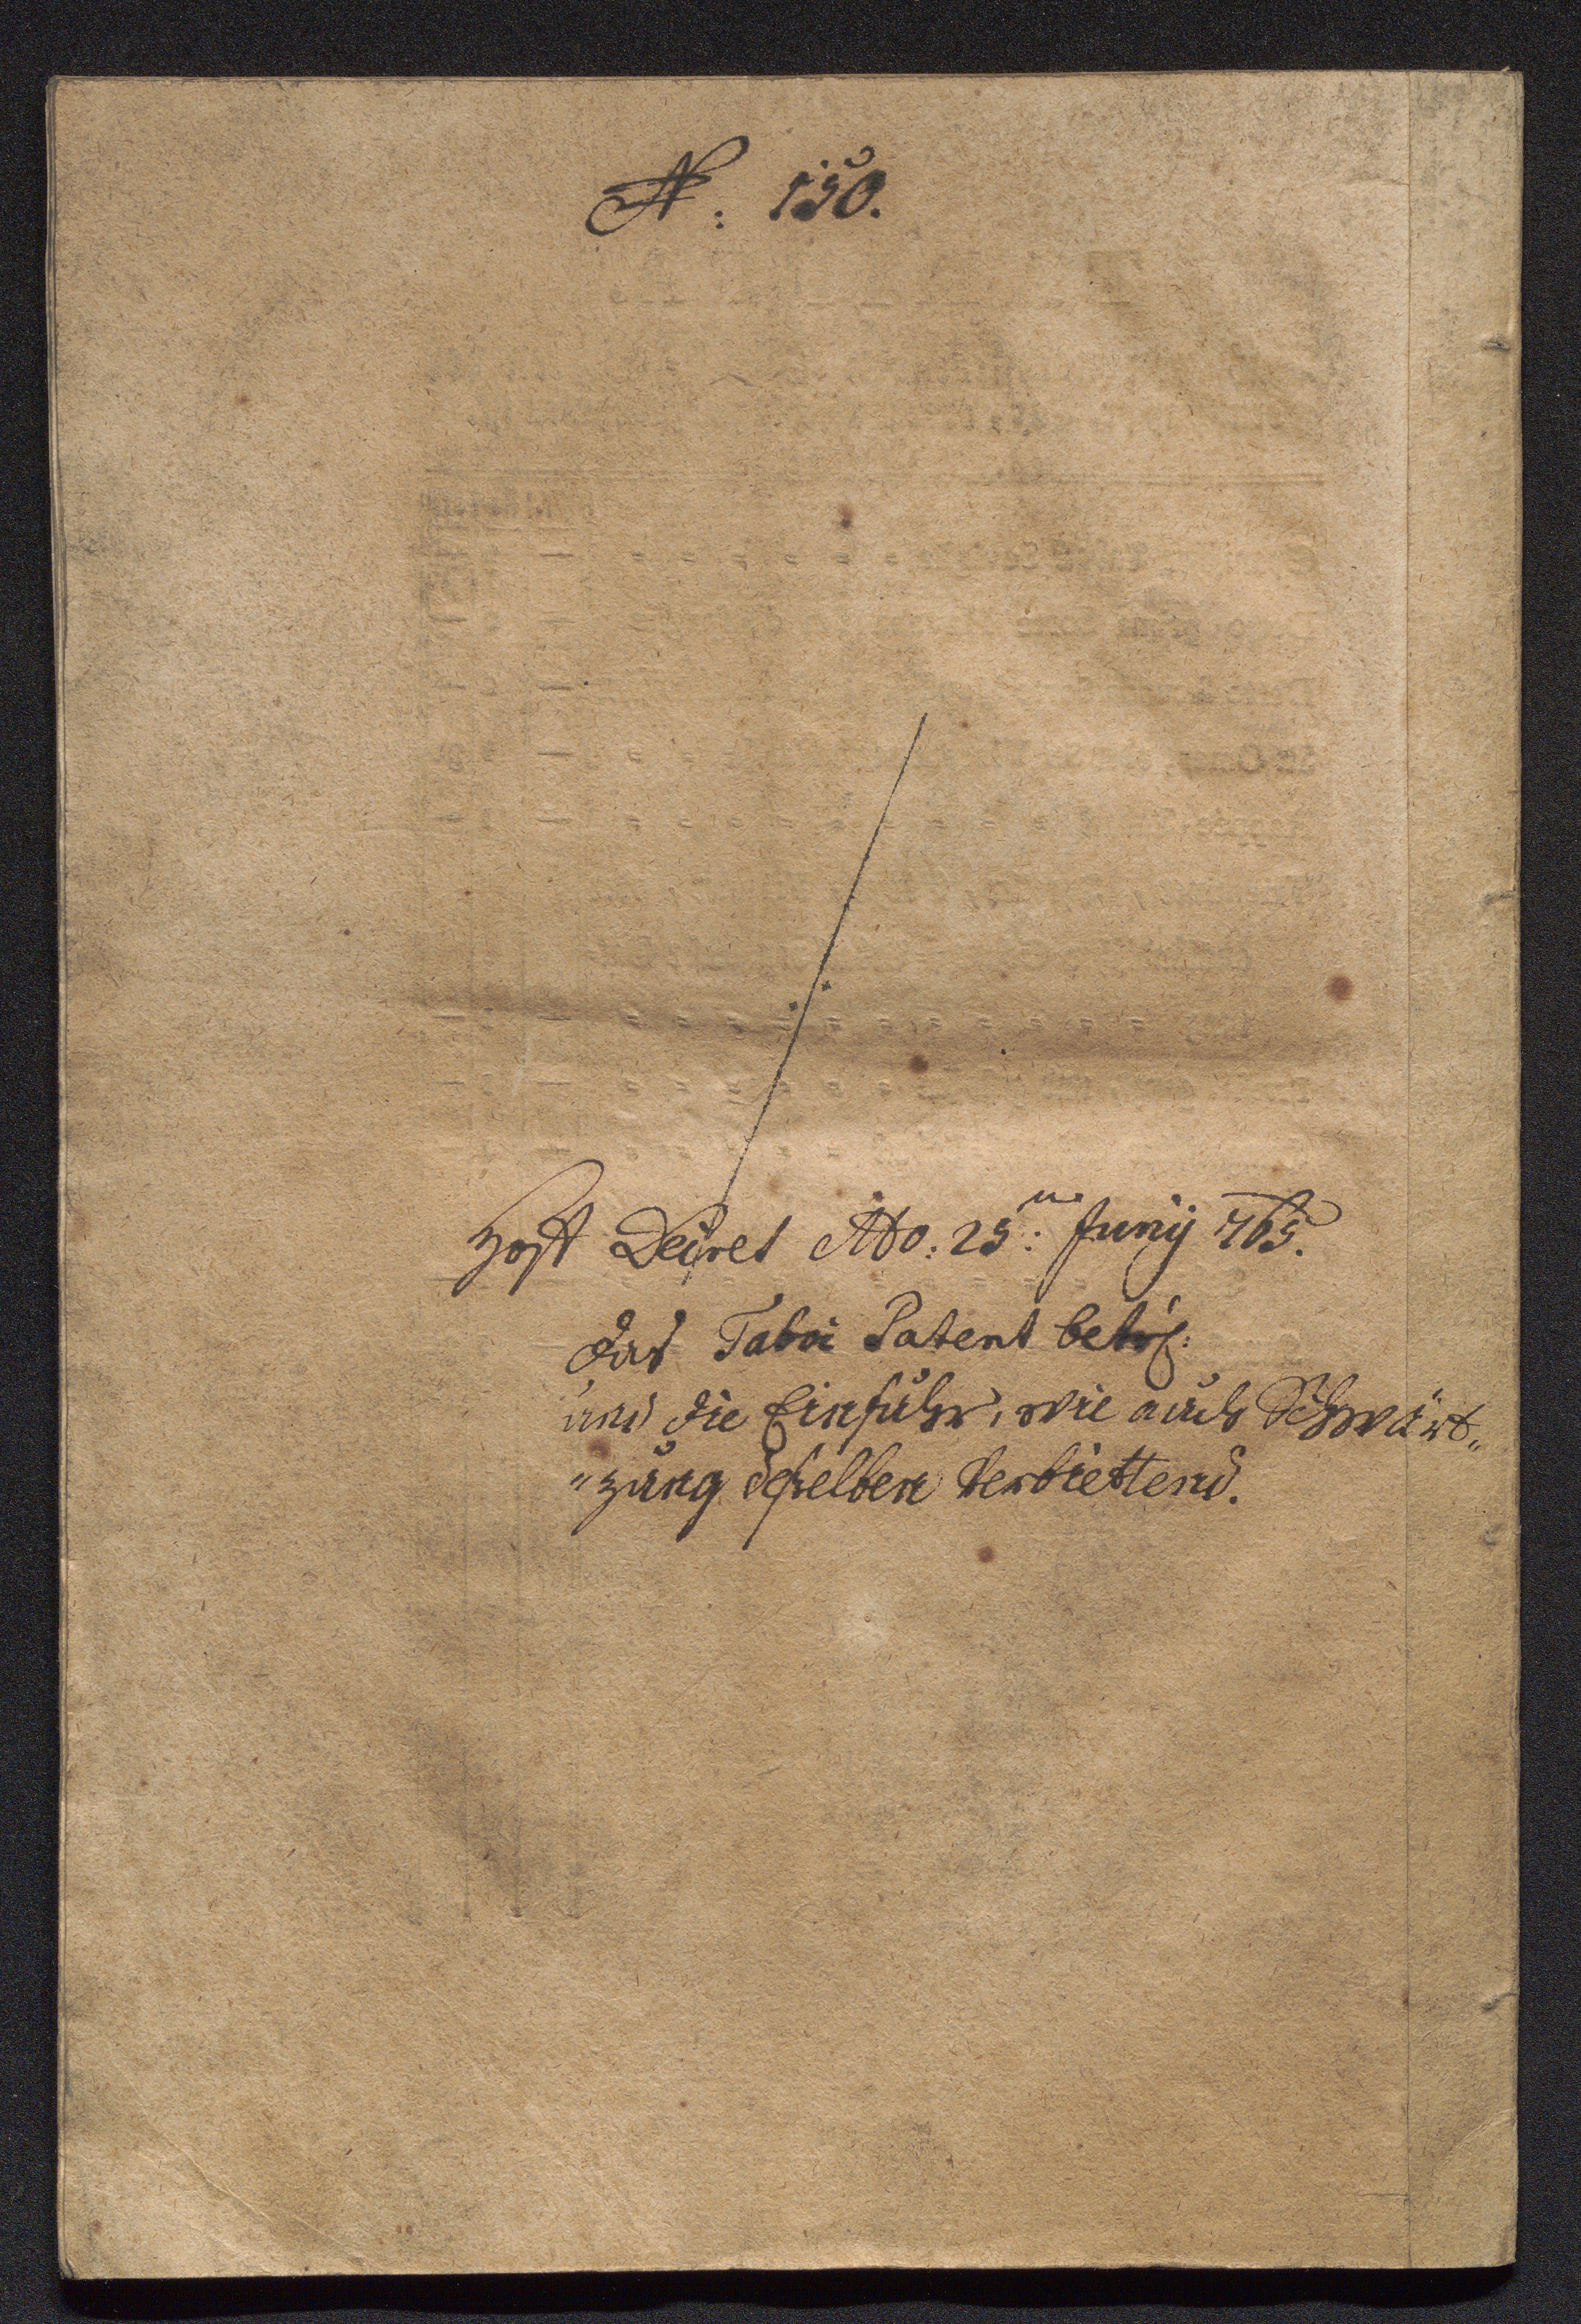 N: 150.
Hoff Decret dto: 25ten Junij 765.
das Tabac Patent betrf:
und die Einfuhr, wie auch Schwärt„
„zung deßelben verbiettend.